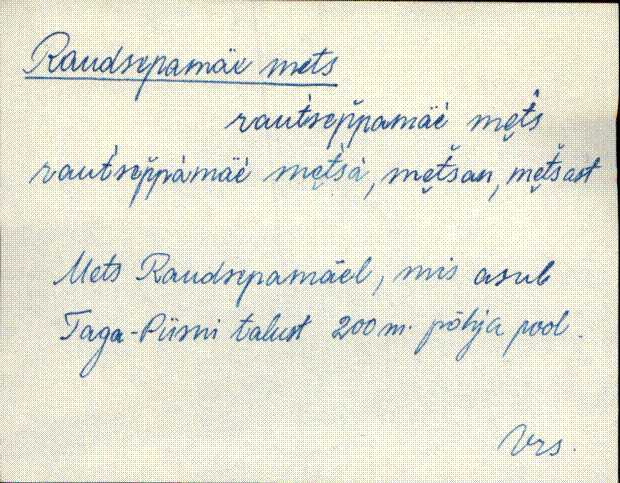 Raudsepamäe mets
raut̀sep̆pamäè męt̀s
raut̀sep̆pàmäè męt̀sà, męt̆san, męt̆sast
Mets Raudsepamäel, mis asub
Taga-Piisni talust 200 m. põhja pool.
Vrs.